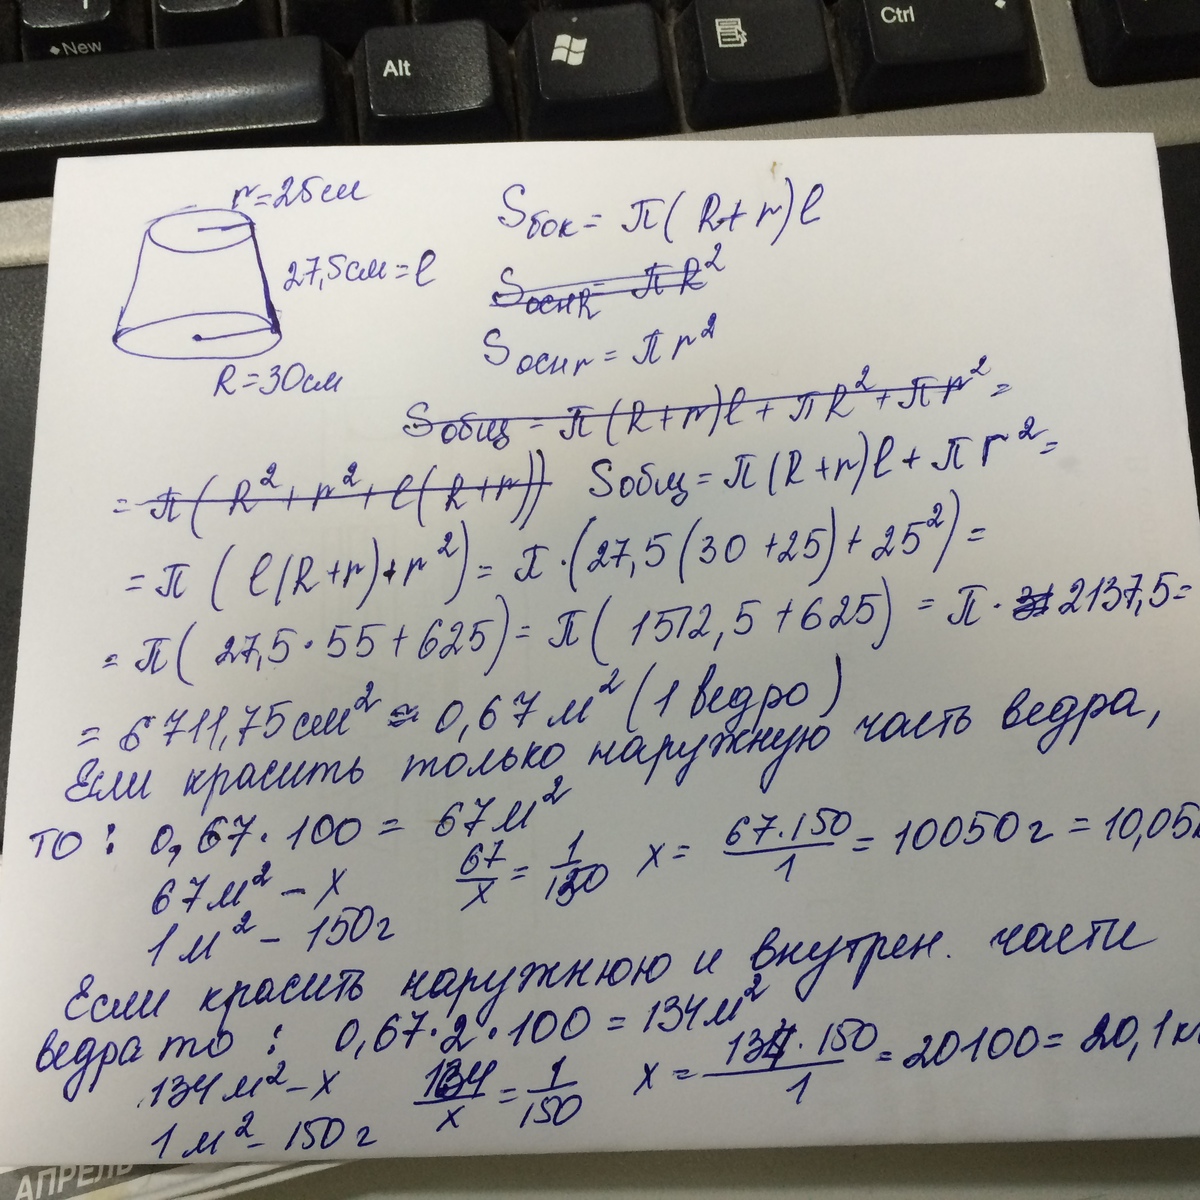 New
Alt
Ctrl
r=25см
27,5см=l
R=30см
Sбок= π(R+r)l
SоснR= πR²
Sоснr= πr²
Sобщ= π(R+r)l+πR²+πr²=
=π(R²+r²+l(R+r)) Sобщ=π(R+r)l+πr²=
=π(l(R+r)+r²)=π·(27,5(30+25)+25²)=
=π(27,5·55+625)=π(1512,5+625)=π·2137,5=
=6711,75см²≈0,67м²(1 ведро)
Если красить только наружную часть ведра,
то: 0,67·100=67м²
67м²-x 67/x=1/150 x=67·150/1=10050г=10,05
1м²-150г
Если красить наружнюю и внутрен. части
ведра то: 0,67·2·100=134м²
134м²-x 134/x=1/150 x=134·150/1=20100=20,1к
1м²-150г
АПРЕЛЬ